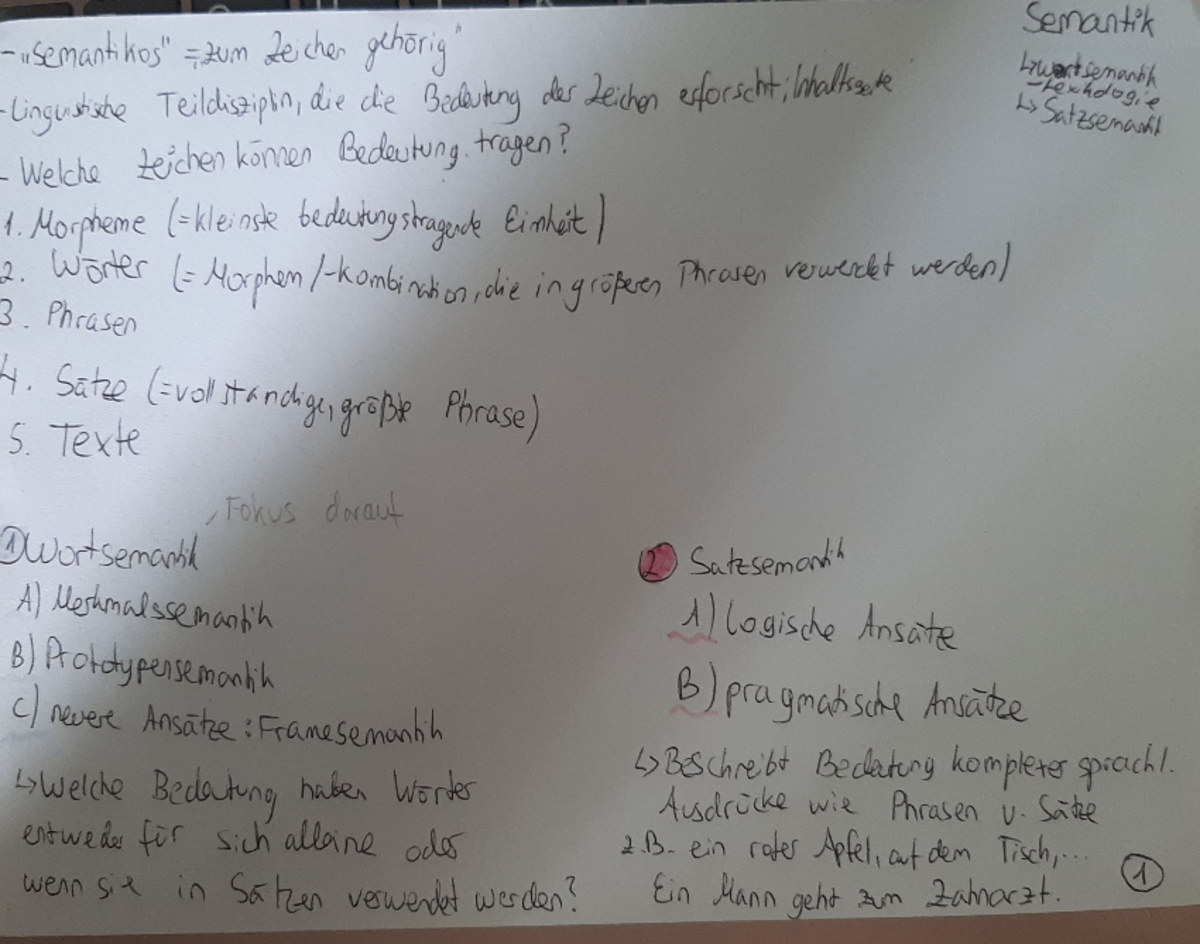 Semantik
↳wortsemantik
-lexikologie
↳ Satzsemantik
- „semantikos" = „zum Zeichen gehörig"
- Linguistische Teildisziplin, die die Bedeutung der Zeichen erforscht; Inhaltsseite
- Welche Zeichen können Bedeutung tragen?
1. Morpheme (=kleinste bedeutungstragende Einheit)
2. Wörter (= Morphem/-kombination, die in größeren Phrasen verwendet werden)
3. Phrasen
4. Sätze (=vollständige, größte Phrase)
5. Texte
Fokus darauf
① Wortsemantik
A) Merkmalssemantik
B) Prototypensemantik
C) neuere Ansätze: Framesemantik
↳Welche Bedeutung haben Wörter
entweder für sich alleine oder
wenn sie in Sätzen verwendet werden?
② Satzsemantik
A) logische Ansätze
B) pragmatische Ansätze
↳ Beschreibt Bedeutung komplexer sprachl.
Ausdrücke wie Phrasen u. Sätze
z.B. ein roter Apfel, auf dem Tisch,...
Ein Mann geht zum Zahnarzt.
①